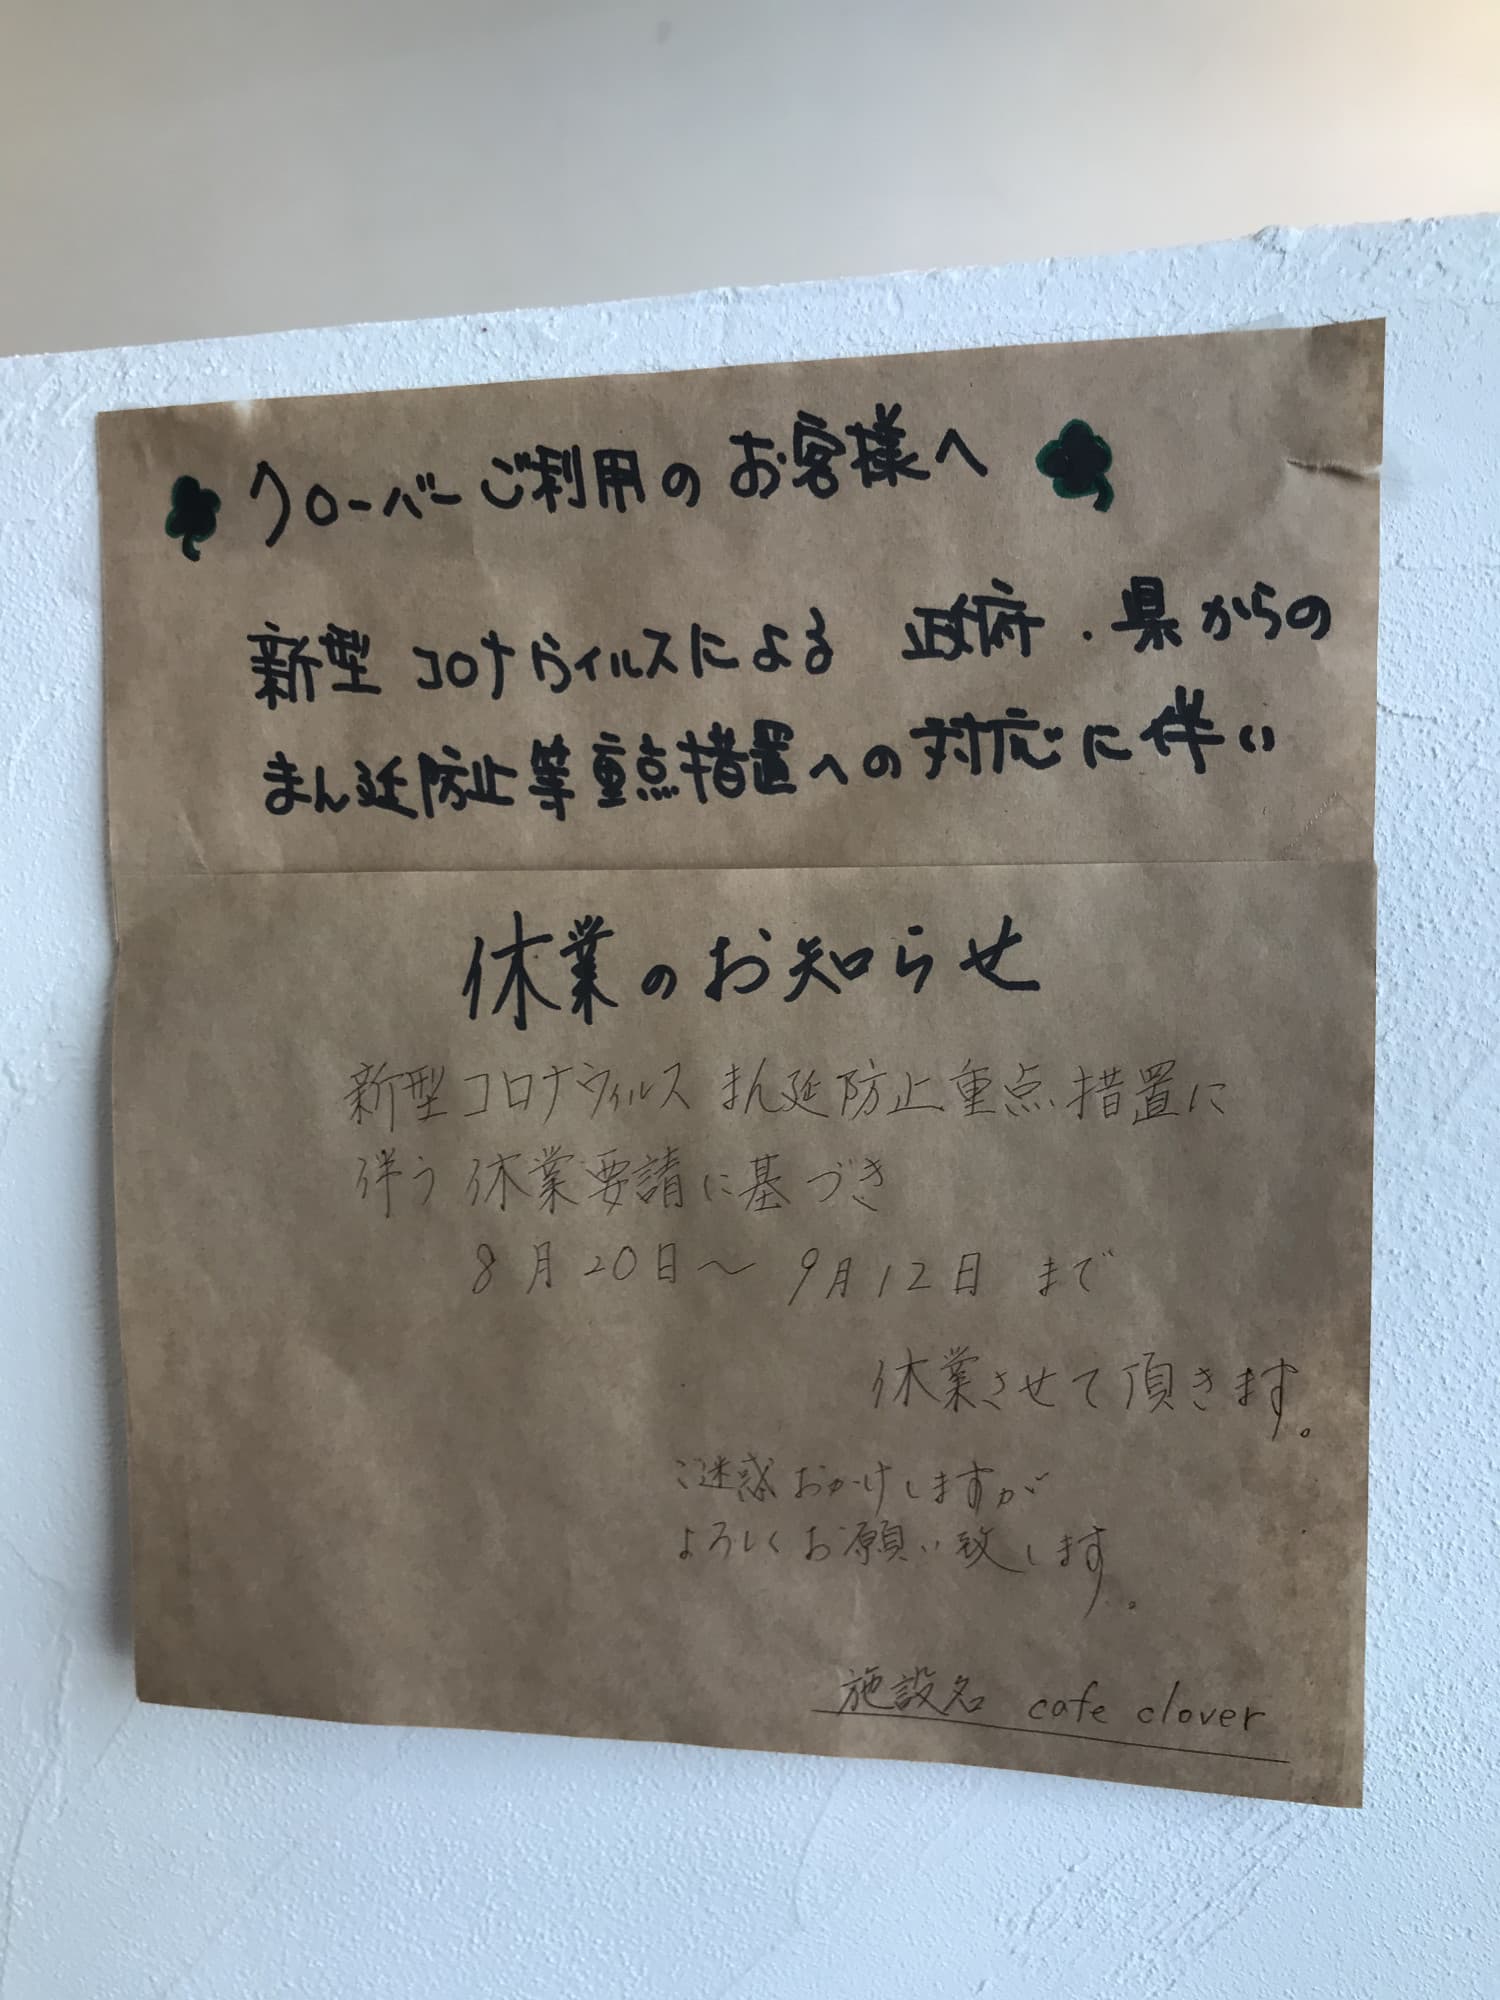 クローバーご利用のお客様へ
新型コロナウィルスによる 政府・県からの
まん延防止等重点措置への対応に伴い
休業のお知らせ
新型コロナウィルス まん延防止重点措置に
伴う 休業要請に基づき
8月20日〜 9月12日 まで
休業させて頂きます。
ご迷惑おかけしますが
よろしくお願い致します。
施設名 cafe clover